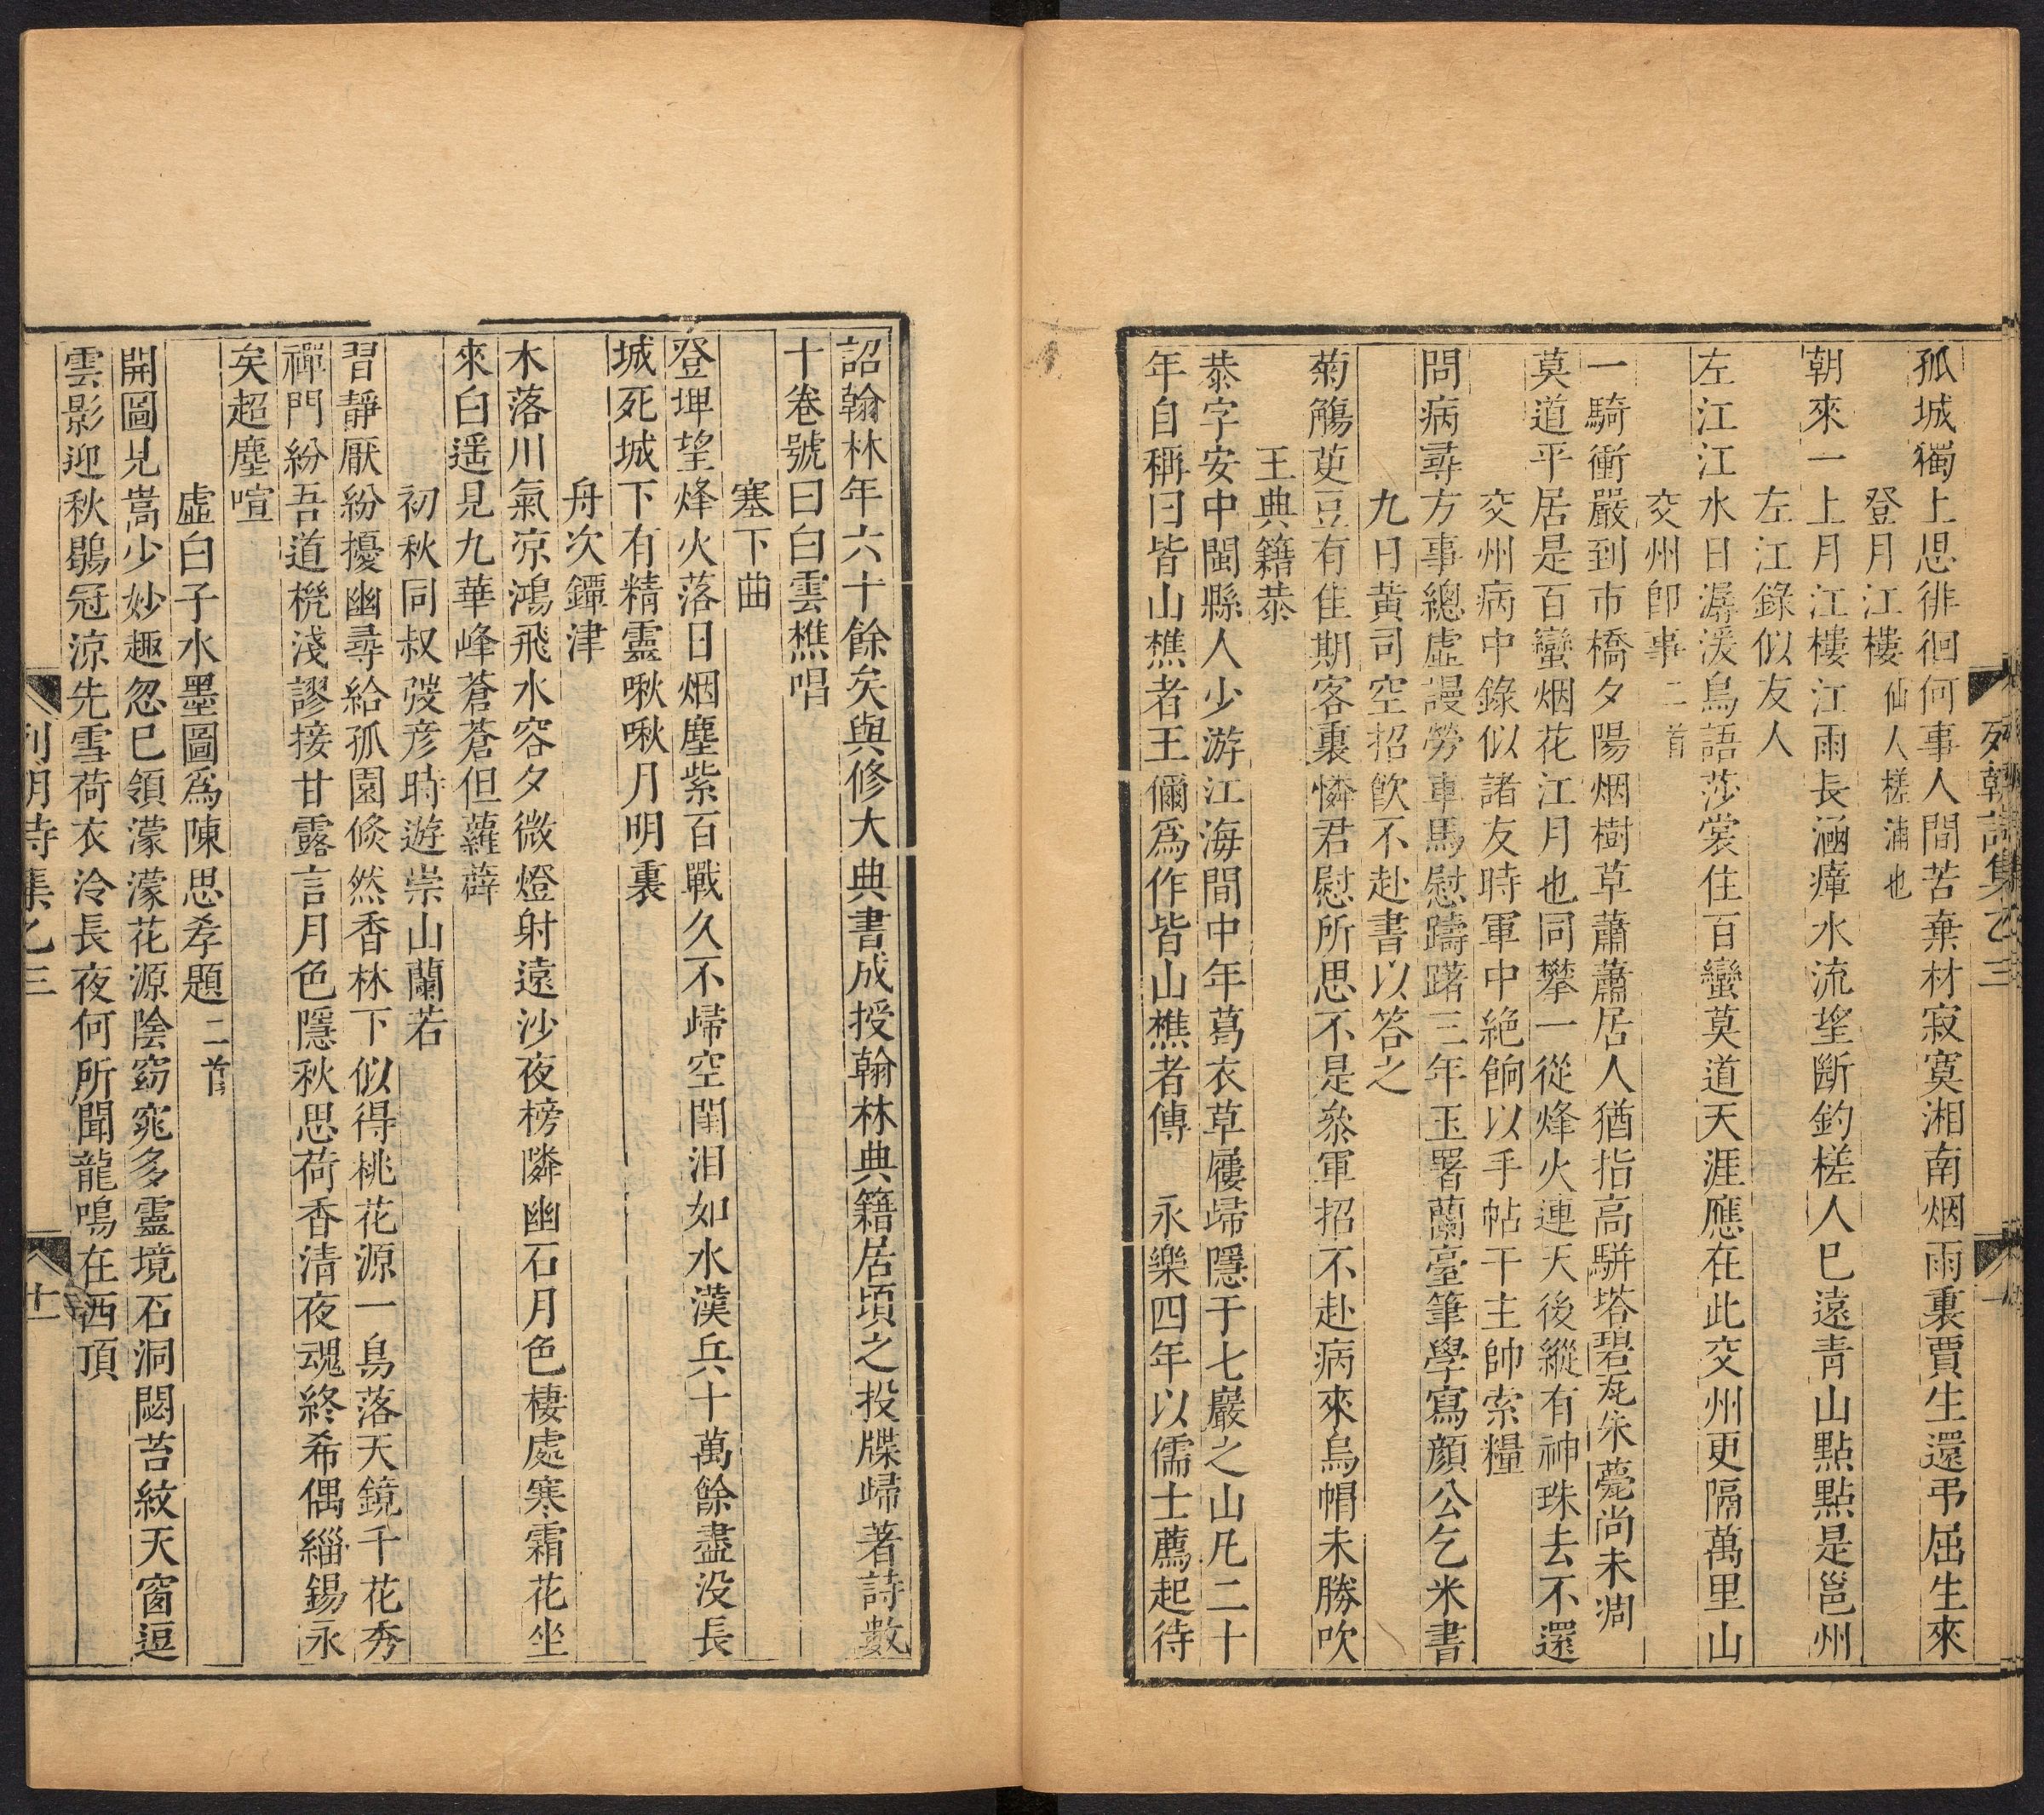 列朝詩集乙三
孤城獨上思徘徊何事人間苦棄材寂寞湘南烟雨裏賈生還弔屈生來
登月江樓仙人槎浦也
朝來一上月江樓江雨長涵瘴水流望斷釣槎人已遠青山點點是邕州
左江錄似友人
左江江水日潺湲鳥語莎裳住百蠻莫道天涯應在此交州更隔萬里山
交州卽事二首
一騎衝嚴到市橋夕陽烟樹草蕭蕭居人猶指高駢塔碧瓦朱薨尚未凋
莫道平居是百蠻烟花江月也同攀一從烽火連天後縱有神珠去不還
交州病中錄似諸友時軍中絶餉以手帖干主帥索糧
問病尋方事總虛謾勞車馬慰躊躇三年玉署蘭臺筆學寫顏公乞米書
九日黃司空招飮不赴書以答之
菊觴萸豆有佳期客裏憐君慰所思不是叅軍招不赴病來烏帽未勝吹
王典籍恭
恭字安中閩縣人少游江海間中年葛衣草屨歸隱于七巖之山凡二十
年自稱曰皆山樵者王偁爲作皆山樵者傳　永樂四年以儒士薦起待
詔翰林年六十餘矣與修大典書成授翰林典籍居頃之投牒歸著詩數
十卷號曰白雲樵唱
塞下曲
登埤望烽火落日烟塵紫百戰久不歸空閨泪如水漢兵十萬餘盡没長
城死城下有精靈啾啾月明裏
舟次鐔津
木落川氣凉鴻飛水容夕微燈射遠沙夜榜隣幽石月色棲處寒霜花坐
來白遥見九華峰蒼蒼但蘿薜
初秋同叔弢彦時遊崇山蘭若
習靜厭紛擾幽尋給孤園倐然香林下似得桃花源一鳥落天鏡千花秀
禪門紛吾道機淺謬接甘露言月色隱秋思荷香清夜魂終希偶緇錫永
矣超塵喧
虛白子水墨圖爲陳思孝題二首
開圖見嵩少妙趣忽已領濛濛花源陰窈窕多靈境石洞閟苔紋天窗逗
雲影迎秋鶡冠涼先雪荷衣冷長夜何所聞龍鳴在西頂
列朝詩集乙三
十一